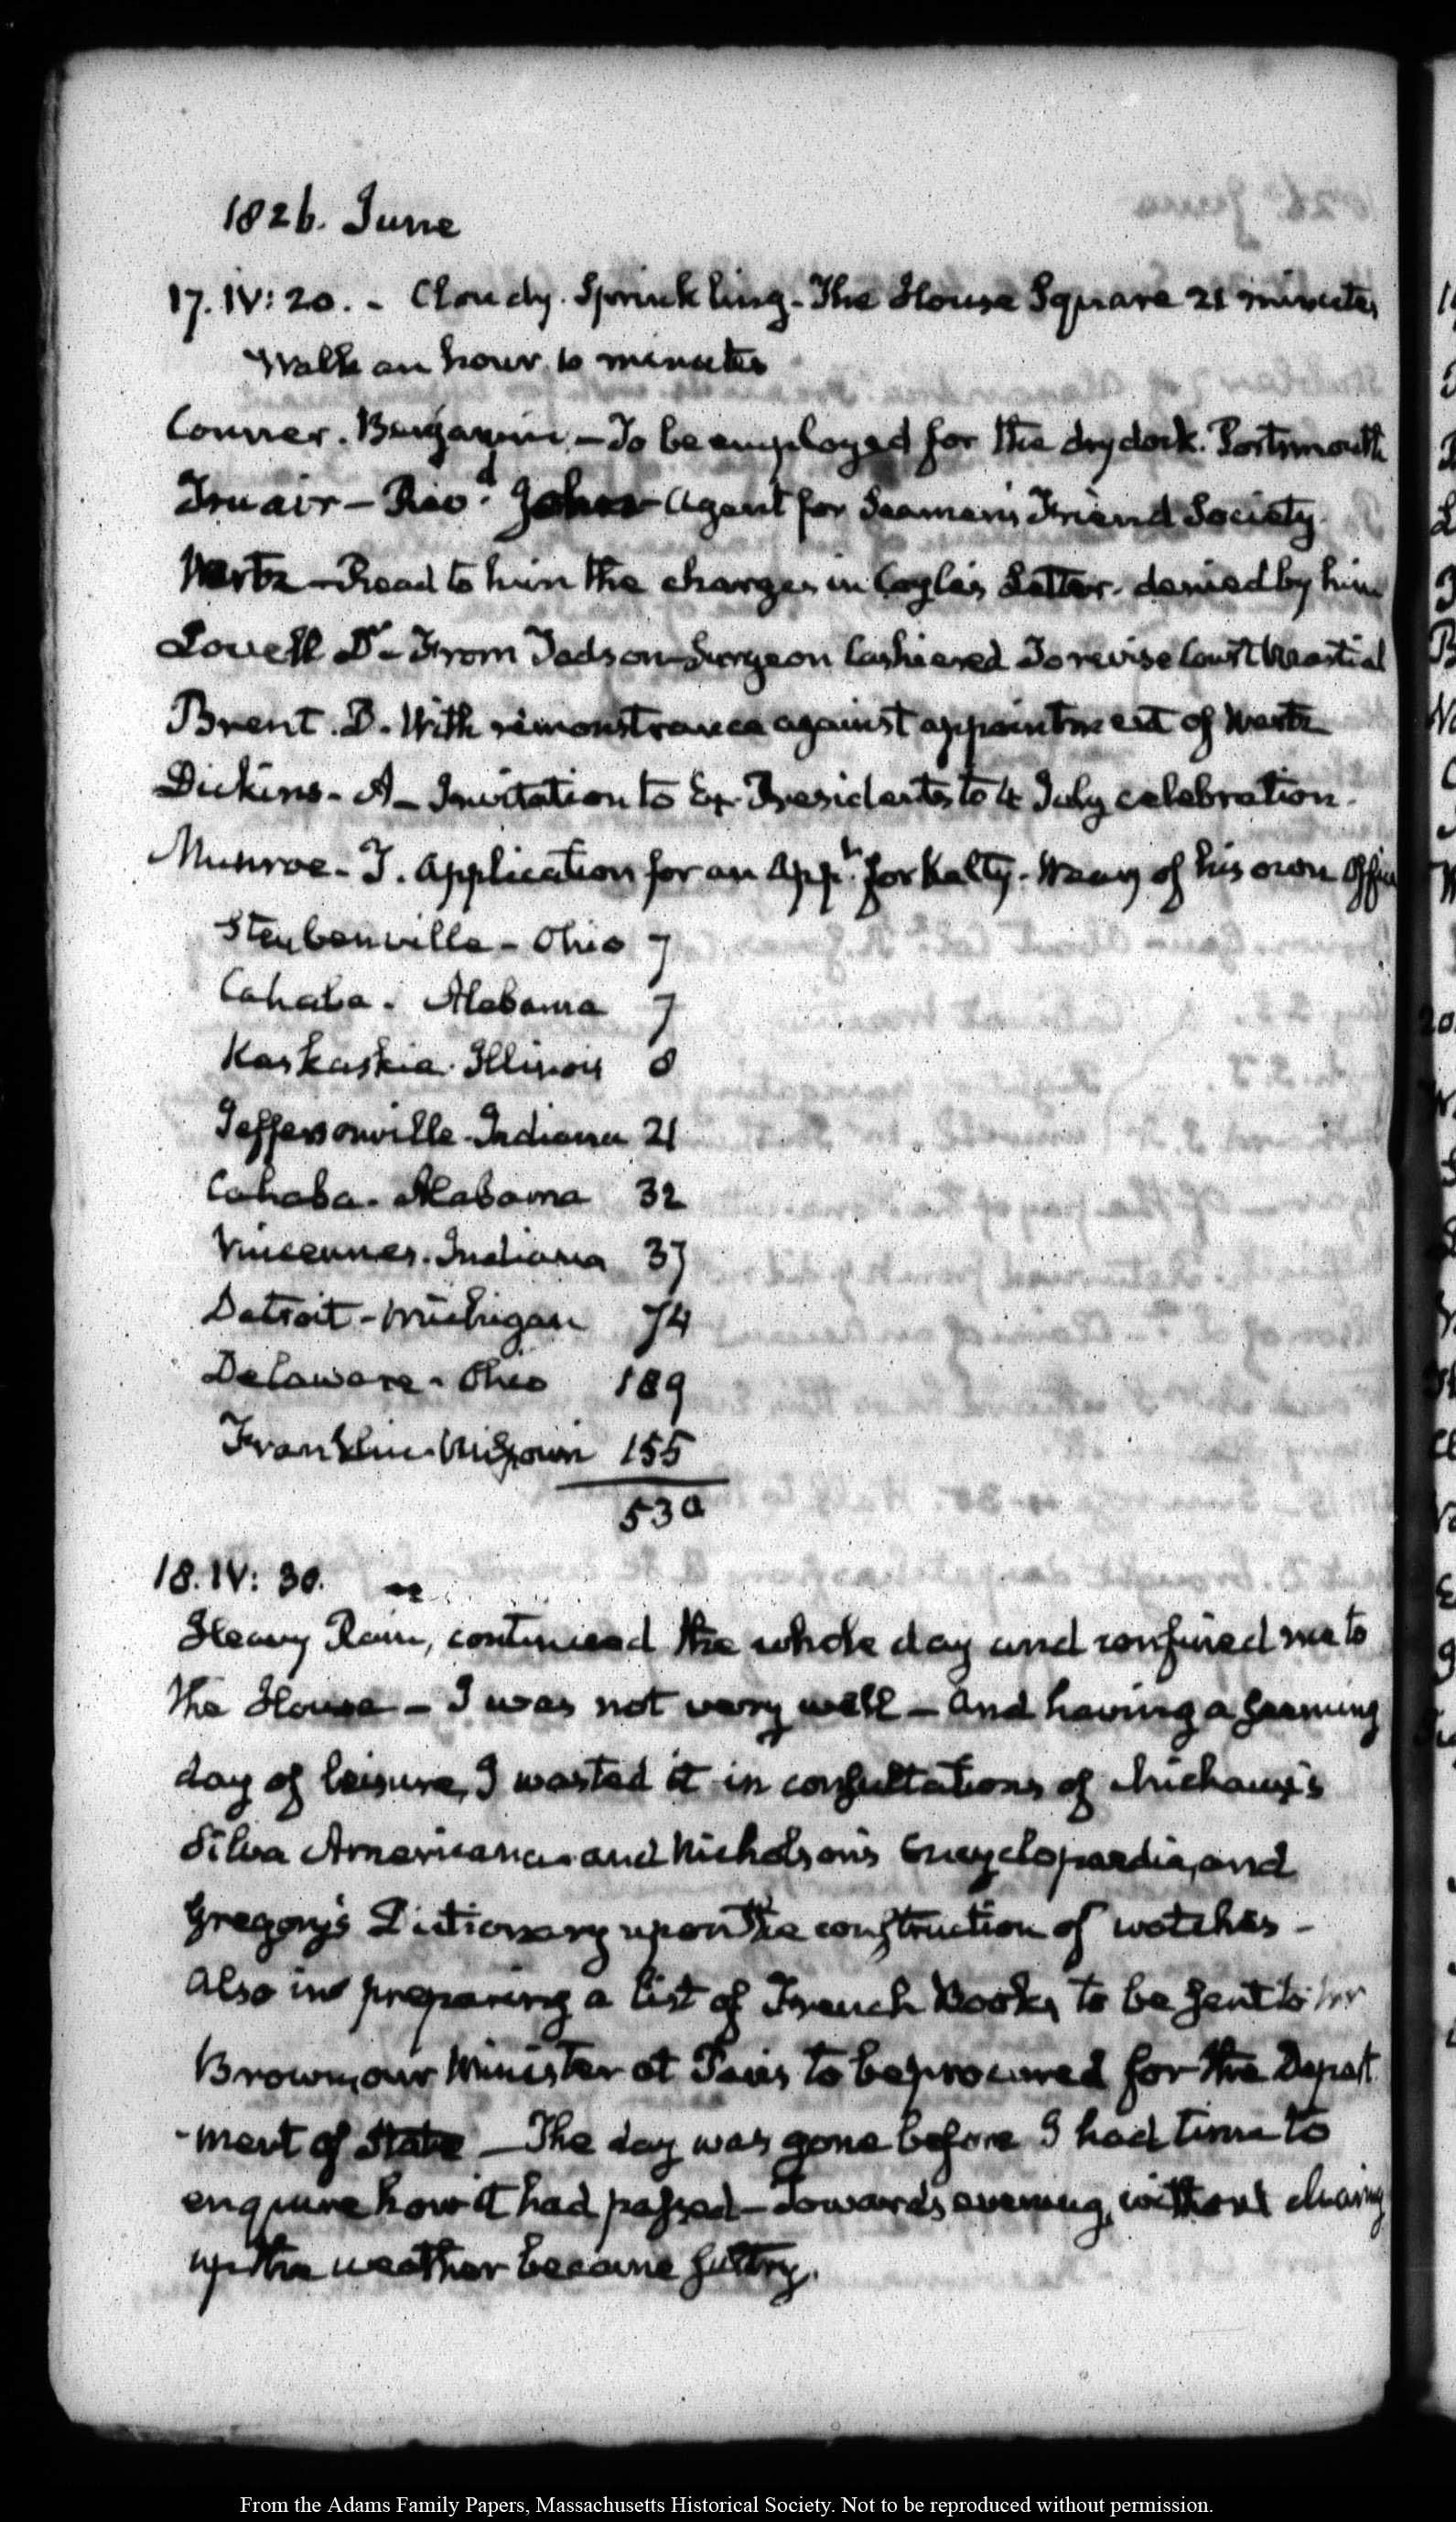 1826. June
17. IV: 20. - Cloudy. Sprinkling - The House Square 21 minutes
Walk an hour 10 minutes
Conner. Benjamin. - To be employed for the dry dock. Portsmouth
Truair - Revd. John - Agent for Seamen's Friend Society.
Wertz - Read to him the charges in Coyle's Letter. denied by him
Lovell Dr - From Todson Surgeon Cashiered To revise Court Martial
Brent. D. With remonstrance against appointment of Wertz
Dickins - A - Invitation to Ex-Presidents to 4 July celebration.
Munroe - T. Application for an Appt. for Kalty. Weary of his own Office
Steubenville - Ohio 7
Cahaba. Alabama 7
Kaskaskia. Illinois 8
Jeffersonville. Indiana 21
Cahaba. Alabama 32
Vincennes. Indiana 37
Detroit - Michigan 74
Delaware - Ohio 189
Franklin. Missouri 155
530
18. IV: 30.
Heavy Rain, continued the whole day and confined me to
the House - I was not very well - and having a seeming
day of leisure, I wasted it in consultations of Michaux's
Silva Americana and Nicholson's Encyclopaedia, and
Gregory's Dictionary upon the construction of watches -
also in preparing a list of French Books, to be sent to Mr
Brown, our Minister at Paris to be procured for the Depart
-ment of State - The day was gone before I had time to
enquire how it had passed - Towards evening, without clearing
up the weather became sultry.
From the Adams Family Papers, Massachusetts Historical Society. Not to be reproduced without permission.